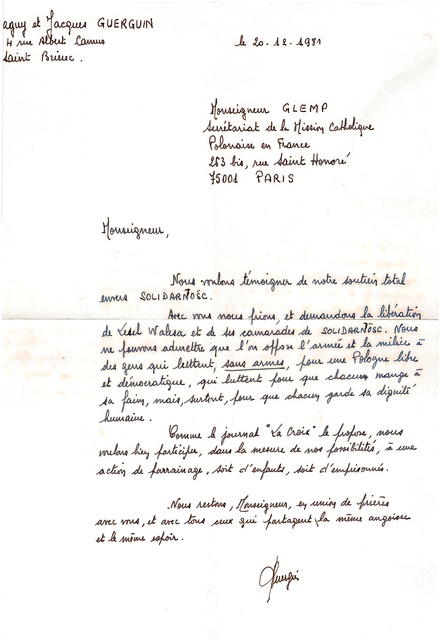 aguy et Jacques GUERGUIN
4 rue Albert Camus
Saint Brieuc.
le 20.12.1981
Monseigneur GLEMP
Secrétariat de la Mission Catholique
Polonaise en France
263 bis, rue Saint Honoré
75001 PARIS
Monseigneur,
Nous voulons témoigner de notre soutien total
envers SOLIDARNOŠC.
Avec vous nous prions, et demandons la libération
de Lesel Walesa et de ses camarades de SOLIDARNOŠC. Nous
ne pouvons admettre que l'on oppose l'armée et la milice à
des gens qui luttent, sans armes, pour une Pologne libre
et démocratique, qui luttent pour que chacun mange à
sa faim, mais, surtout, pour que chacun garde sa dignité
humaine.
Comme le journal "La Croix" le propose, nous
voulons bien participer, dans la mesure de nos possibilités, à une
action de parrainage, soit d'enfants, soit d'emprisonnés.
Nous restons, Monseigneur, en union de prières
avec vous, et avec tous ceux qui partagent la même angoisse
et le même espoir.
Guerguin